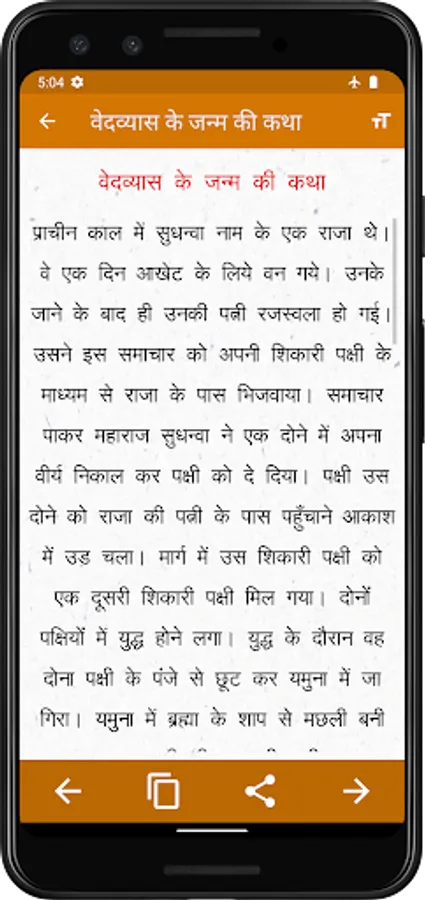 5:04
वेदव्यास के जन्म की कथा
वेदव्यास के जन्म की कथा
प्राचीन काल में सुधन्वा नाम के एक राजा थे।
वे एक दिन आखेट के लिये वन गये। उनके
जाने के बाद ही उनकी पत्नी रजस्वला हो गई।
उसने इस समाचार को अपनी शिकारी पक्षी के
माध्यम से राजा के पास भिजवाया। समाचार
पाकर महाराज सुधन्वा ने एक दोने में अपना
वीर्य निकाल कर पक्षी को दे दिया। पक्षी उस
दोने को राजा की पत्नी के पास पहुँचाने आकाश
में उड़ चला। मार्ग में उस शिकारी पक्षी को
एक दूसरी शिकारी पक्षी मिल गया। दोनों
पक्षियों में युद्ध होने लगा। युद्ध के दौरान वह
दोना पक्षी के पंजे से छूट कर यमुना में जा
गिरा। यमुना में ब्रह्मा के शाप से मछली बनी